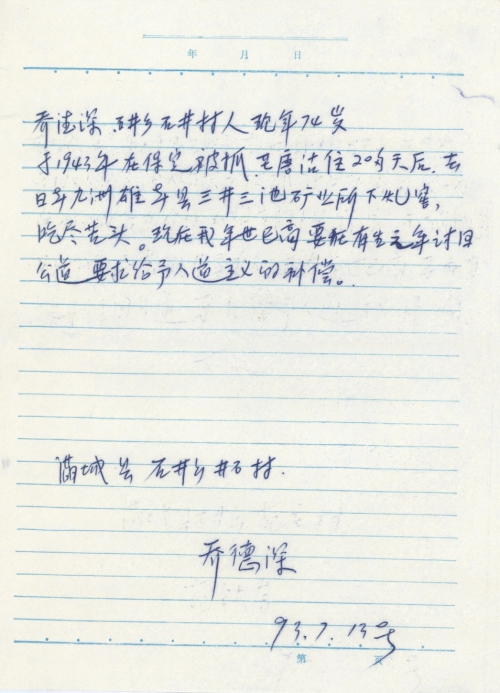 年 月 日
乔德深 石井乡石井村人 现年74岁
于1943年在保定被抓 至唐沽住20多天后 去
日本九洲雄本县三井三池矿业所下煤窑,
吃尽苦头。现在我年世已高 要在有生之年讨回
公道 要求给予人道主义的补偿。
满城县 石井乡井石村.
乔德深
93.7.13号
第 页